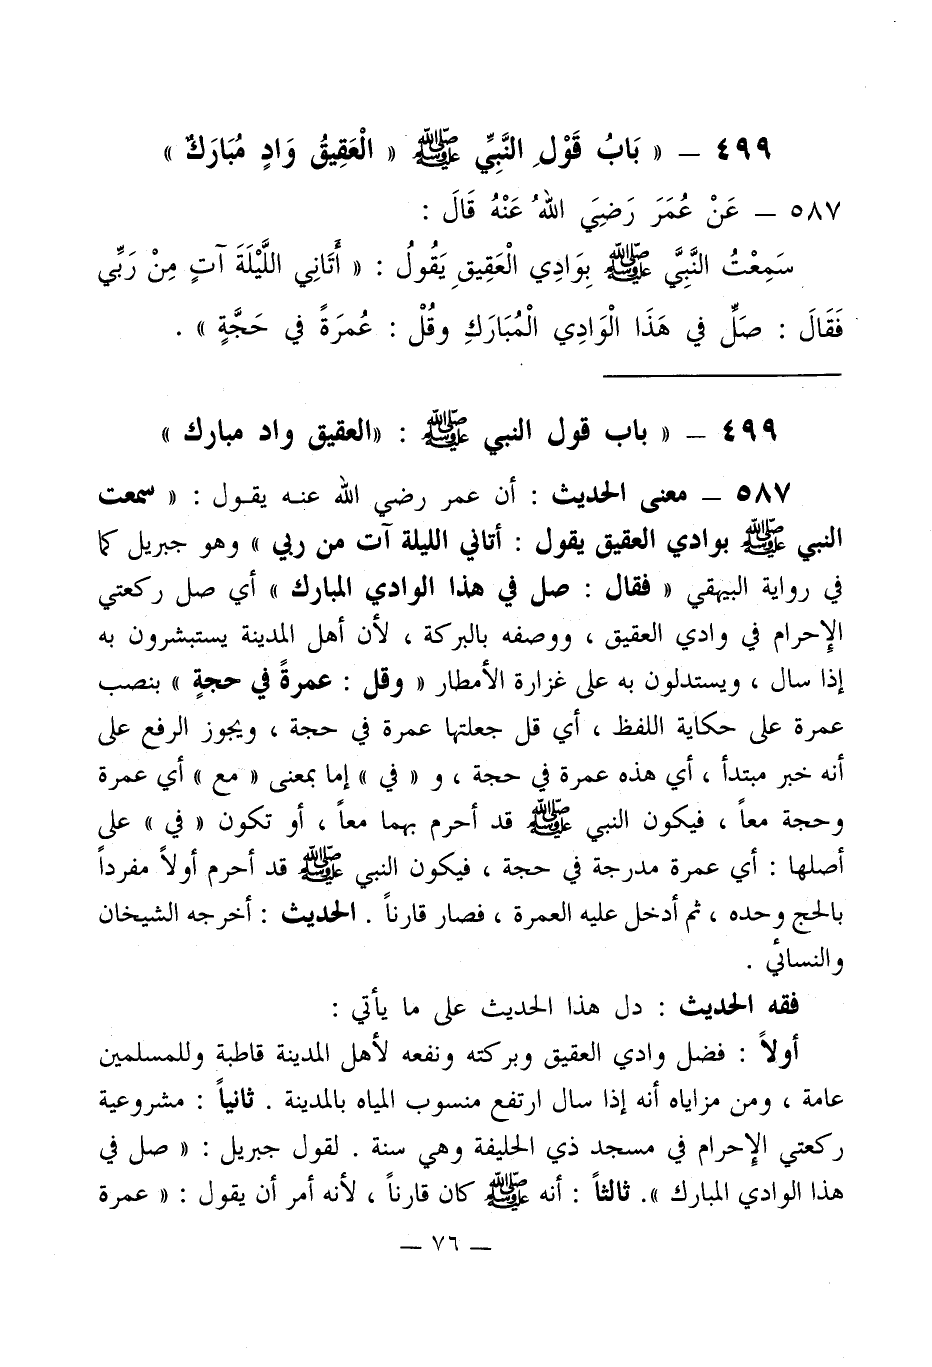 ٤٩٩ ـ « بَابُ قَوْلِ النَّبِيِّ ﷺ « الْعَقِيقُ وَادٍ مُبَارَكٌ »
٥٨٧ ـ عَنْ عُمَرَ رَضِيَ اللهُ عَنْهُ قَالَ :
سَمِعْتُ النَّبِيَّ ﷺ بِوَادِي الْعَقِيقِ يَقُولُ : « أَتَانِي اللَّيْلَةَ آتٍ مِنْ رَبِّي
فَقَالَ : صَلِّ في هَذَا الْوَادِي الْمُبَارَكِ وقُلْ : عُمرَةً في حَجَّةٍ » .
٤٩٩ ـ « باب قول النبي ﷺ : «العقيق واد مبارك »
٥٨٧ ـ معنى الحديث : أن عمر رضي الله عنه يقول : « سمعت
النبي ﷺ بوادي العقيق يقول : أتاني الليلة آت من ربي » وهو جبريل كما
في رواية البيهقي « فقال : صل في هذا الوادي المبارك » أي صل ركعتي
الإحرام في وادي العقيق ، ووصفه بالبركة ، لأن أهل المدينة يستبشرون به
إذا سال ، ويستدلون به على غزارة الأمطار « وقل : عمرةً في حجةٍ » بنصب
عمرة على حكاية اللفظ ، أي قل جعلتها عمرة في حجة ، ويجوز الرفع على
أنه خبر مبتدأ ، أي هذه عمرة في حجة ، و « في » إما بمعنى « مع » أي عمرة
وحجة معاً ، فيكون النبي ﷺ قد أحرم بهما معاً ، أو تكون « في » على
أصلها : أي عمرة مدرجة في حجة ، فيكون النبي ﷺ قد أحرم أولاً مفرداً
بالحج وحده ، ثم أدخل عليه العمرة ، فصار قارناً . الحديث : أخرجه الشيخان
والنسائي .
فقه الحديث : دل هذا الحديث على ما يأتي :
أولاً : فضل وادي العقيق وبركته ونفعه لأهل المدينة قاطبة وللمسلمين
عامة ، ومن مزاياه أنه إذا سال ارتفع منسوب المياه بالمدينة . ثانياً : مشروعية
ركعتي الإحرام في مسجد ذي الحليفة وهي سنة . لقول جبريل : « صل في
هذا الوادي المبارك ». ثالثاً : أنه ﷺ كان قارناً ، لأنه أمر أن يقول : « عمرة
ـ ٧٦ ـ